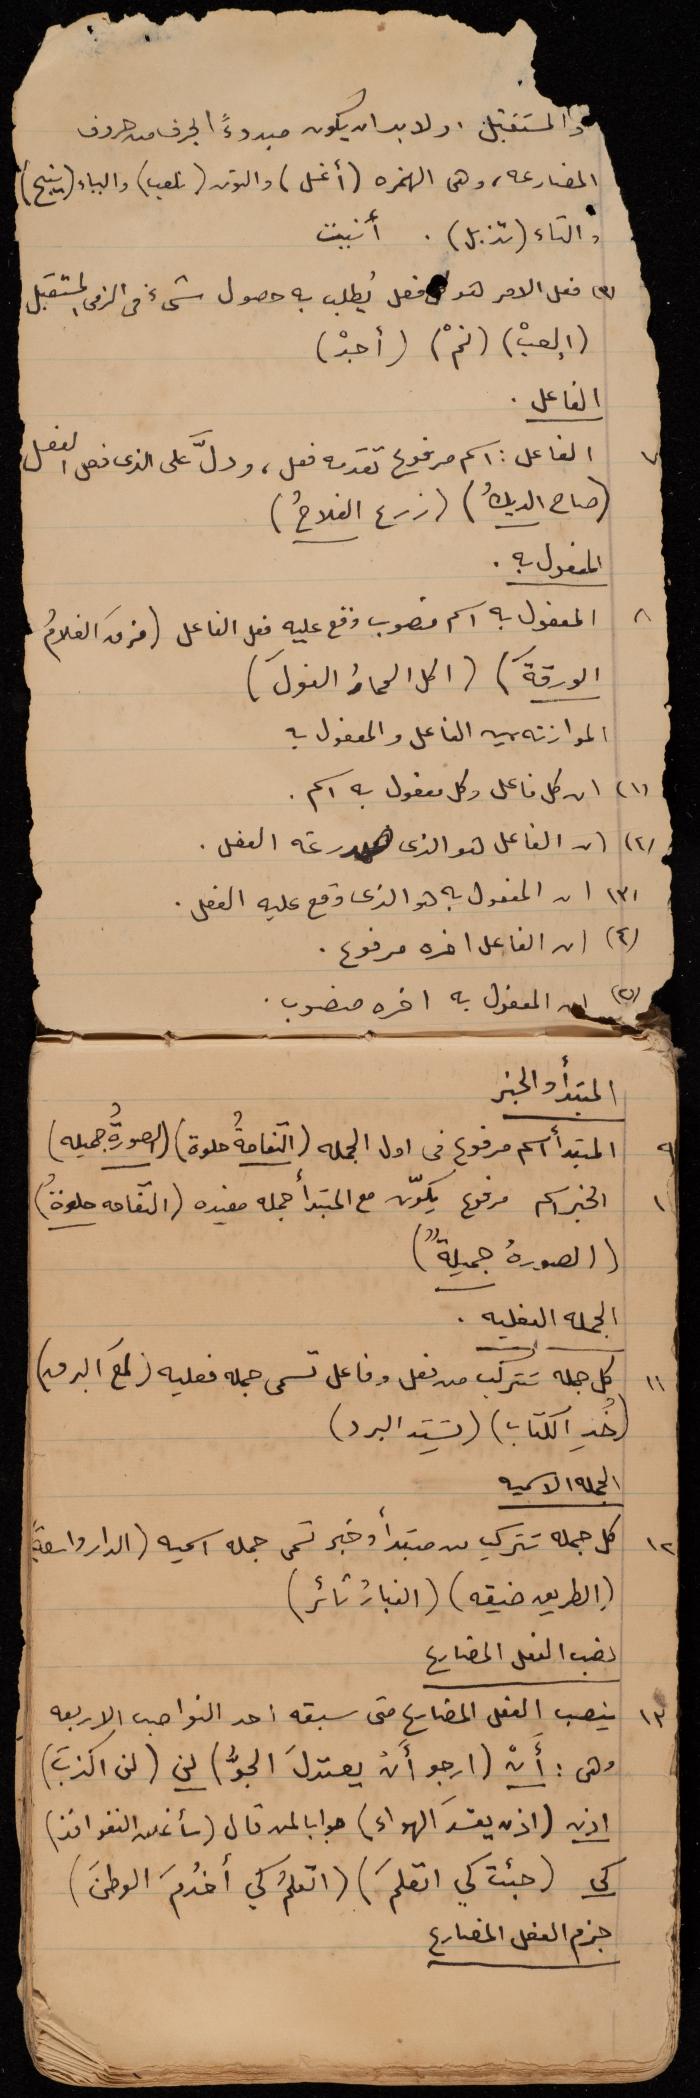 والمستقبل، ولابد ان يكون مبدوءً بحرف من حروف
المضارعه، وهى الهمزه (أغسل) والنون (نلعب) والياء (ينبح)
والتاء (تذبل). أنيت
(٣) فعل الامر هو فعل يُطلب به حصول شىء فى الزمن المستقبل
(إلعبْ) (نمْ) (أجدْ)
الفاعل.
٧ الفاعل: اسم مرفوع تقدمه فعل، ودلَّ على الذى فعل الفعل
(صاح الديكُ) (زرع الفلاحُ)
المفعول به.
٨ المفعول به اسم منصوب وقع عليه فعل الفاعل (مزقَ الغلامُ
الورقةَ) (اكل الحمارُ الفولَ)
الموازنه بين الفاعل والمفعول به
(١) ان كل فاعل وكل مفعول به اسم.
(٢) ان الفاعل هو الذى عنه الفعل.
(٣) ان المفعول به هو الذى وقع عليه الفعل.
(٤) ان الفاعل اخره مرفوع.
(٥) ان المفعول به اخره منصوب.
المبتدأ والخبر
٩ المبتدأ اسم مرفوع فى اول الجمله (التفاحةُ حلوة) (الصورةُ جميله)
١٠ الخبر اسم مرفوع يكوّن مع المبتدأ جمله مفيده (التفاحه حلوةٌ)
(الصورهُ جميلةٌ)
الجمله الفعليه.
١١ كل جمله تتركب من فعل وفاعل تسمى جمله فعليه (لمعَ البرق)
(خُذِ الكتاب) (يشتد البرد)
الجمله الاسميه
١٢ كل جمله تتركب من مبتدأ وخبر تسمى جمله اسميه (الدار واسعةٌ)
(الطريق ضيقه) (الغبارُ ثائر)
نصب الفعل المضارع
١٣ ينصب الفعل المضارع متى سبقه احد النواصب الاربعه
وهى: أَنْ (ارجو أَنْ يعتدلَ الجوُّ) لن (لن اكذبَ)
اذن (اذن يفسدَ الهواء) جوابا لمن قال (سأغلق النوافذ)
كي (جئت كي اتعلمَ) (اتعلمُ كي أخدُمَ الوطنَ)
جزم الفعل المضارع